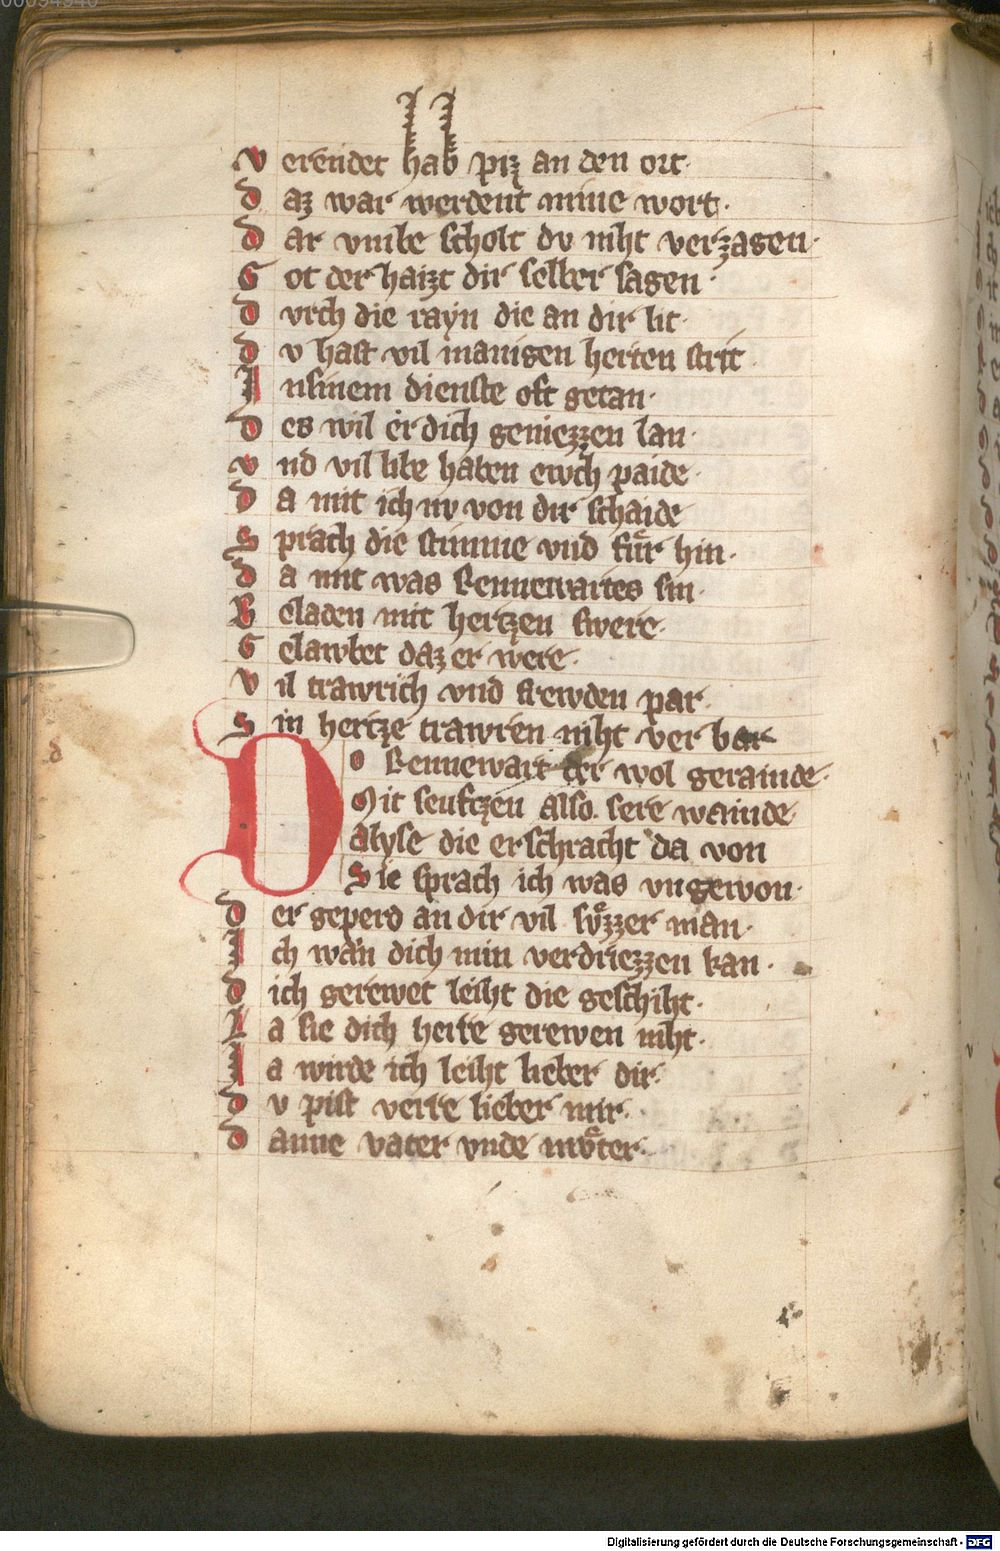 00094940
v erendet hab piz an den ort·
d az war werdent mine wort·
d ar vmbe scholt dv niht verzagen·
G ot der haizt dir selber sagen·
d vrch die rayn die an dir lit·
d v hast vil manigen herten strit·
I nsinem dienste oft getan·
d es wil er dich geniezzen lan·
v nd vil libe haben ewch paide·
d a mit ich nv von dir schaide
S prach die stimme vnd fuͤr hin·
d a mit was Rennewartes sin·
B eladen mit hertzen swere·
G elawbet daz er were·
V il trawrich vnd frewden par·
S in hertze trawren niht ver bar
D o Rennewart der wol gerainde·
Mit seuftzen also sere wainde·
Alyse die erschracht da von
Sie sprach ich was vngewon·
d er geperd an dir vil suͤzzer man·
I ch wan dich min verdriezzen kan·
d ich gerewet leiht die geschiht·
L a sie dich herre gerewen niht·
I a wirde ich leiht lieber dir·
d v pist verre lieber mir·
d anne vater vnde muͦter·
d
Digitalisierung gefördert durch die Deutsche Forschungsgemeinschaft - DFG